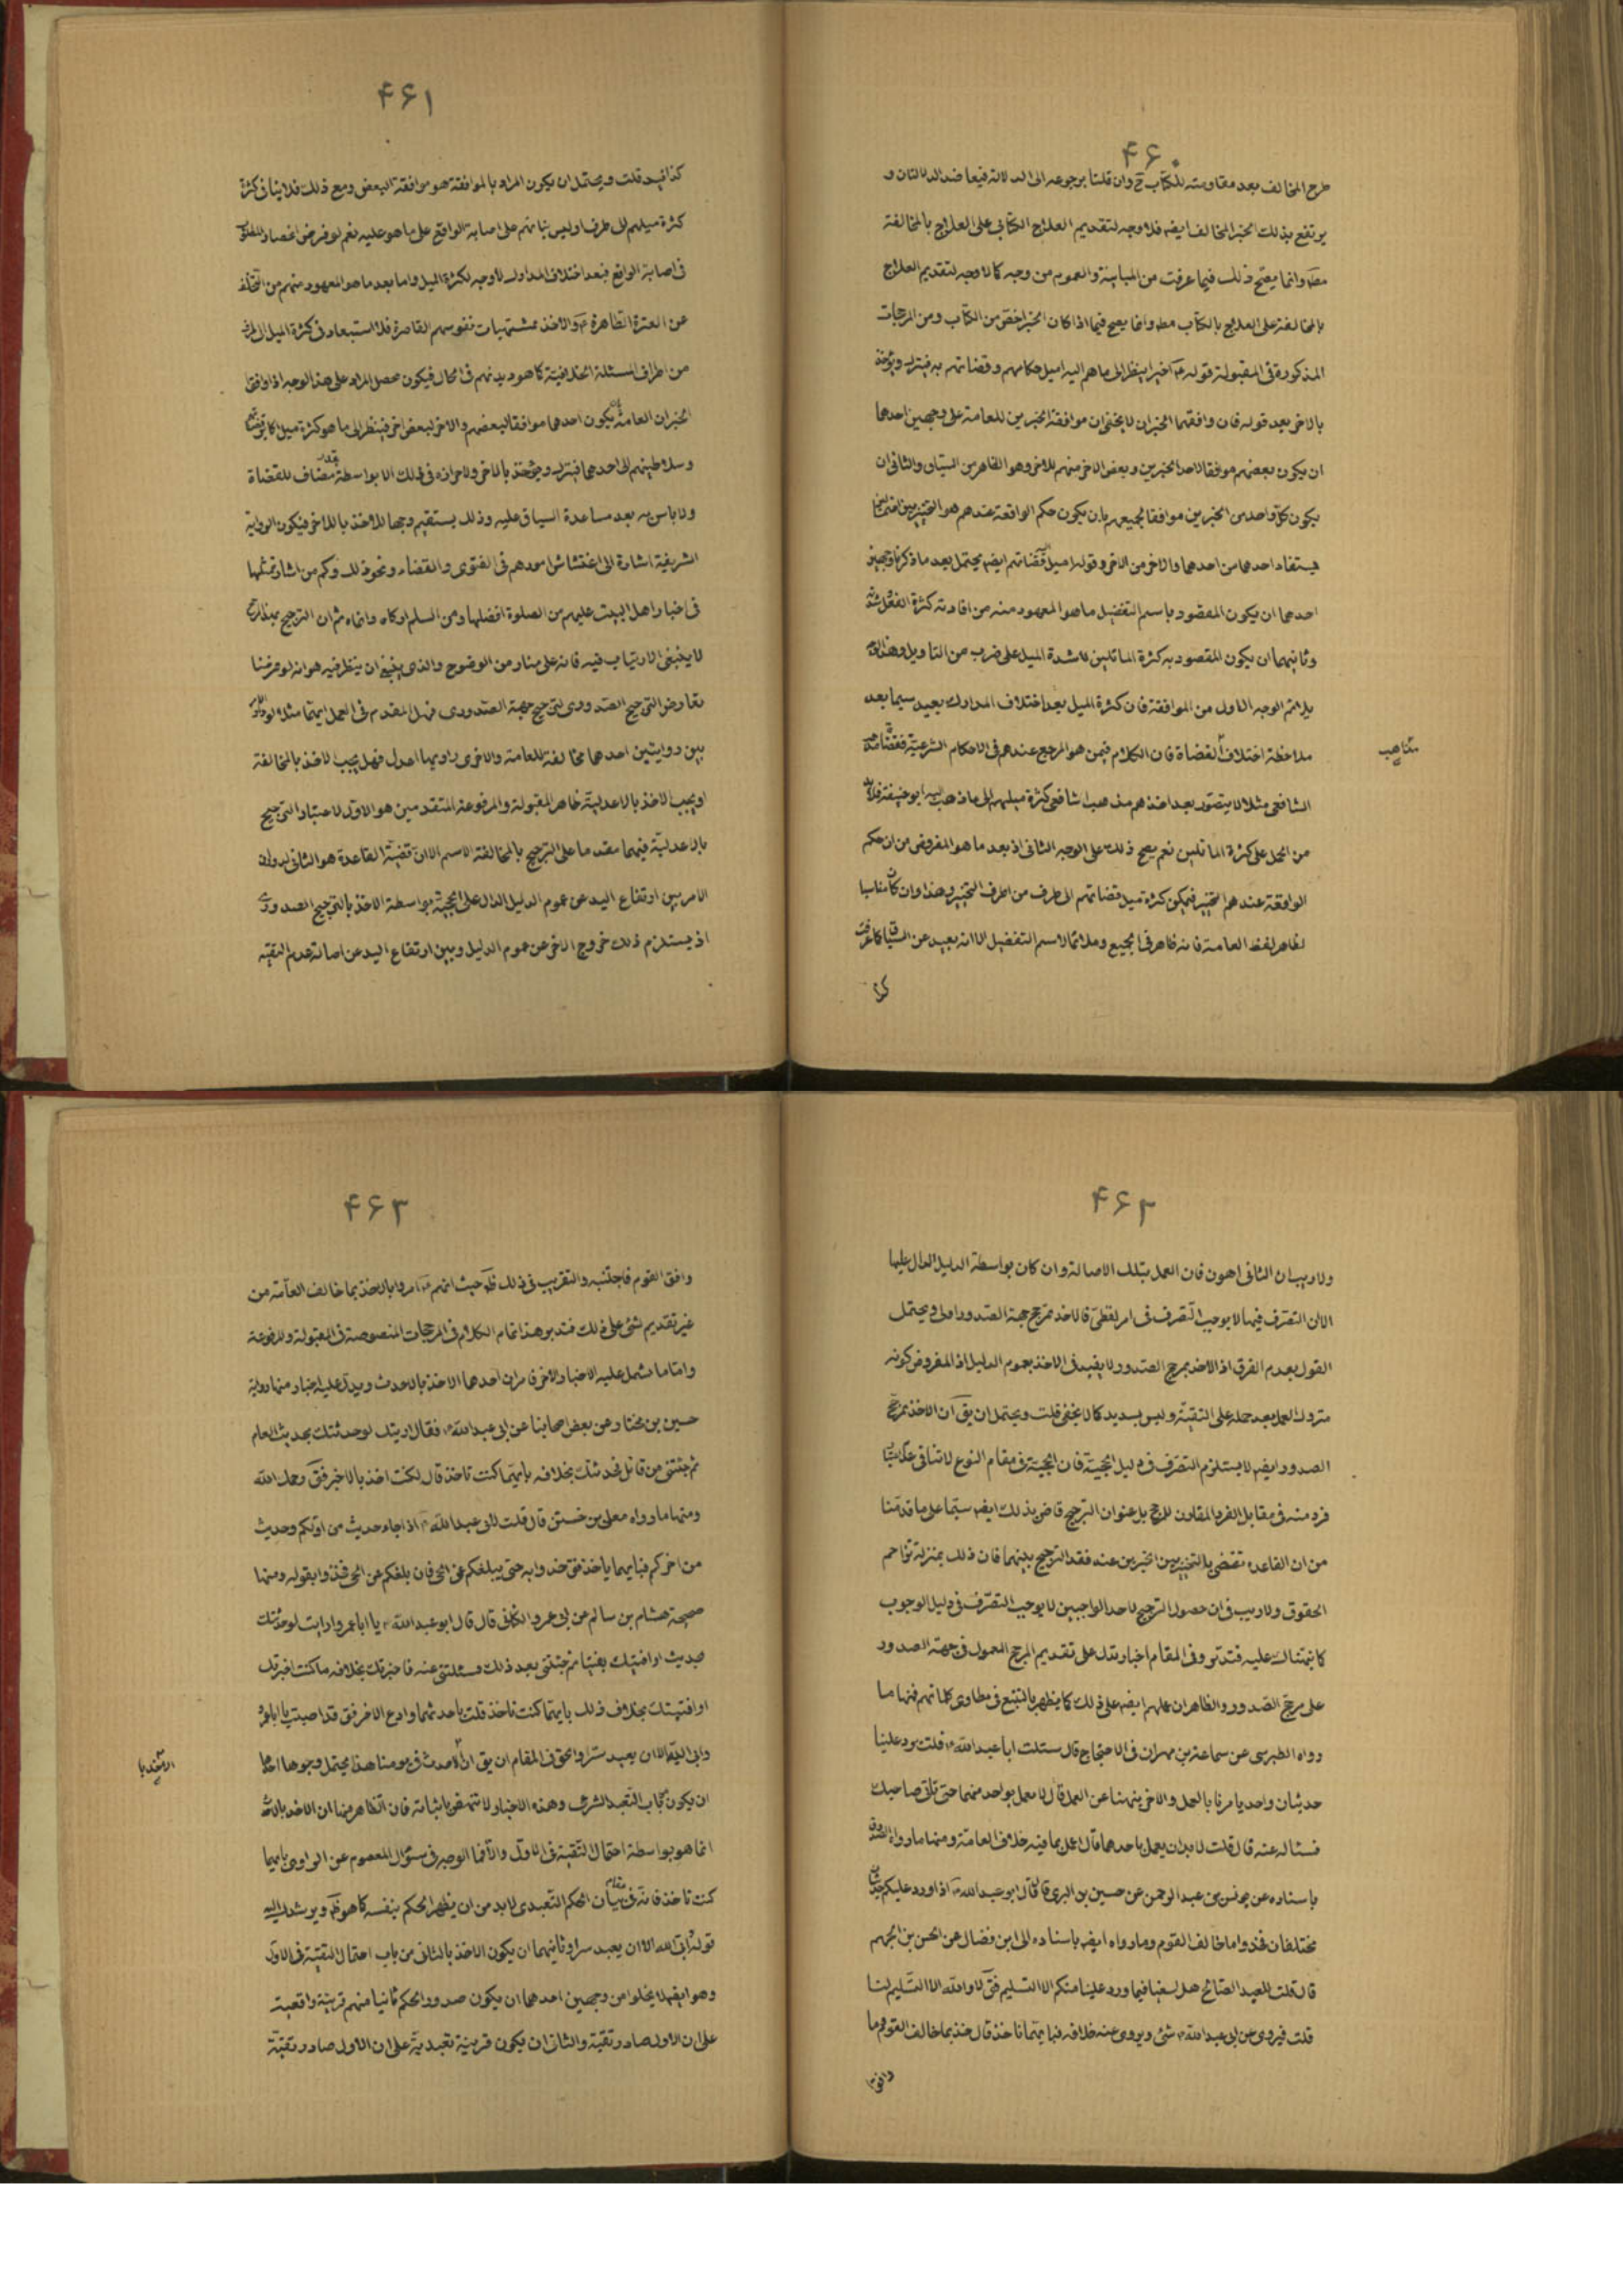 ۴۶۰
طرح المخالف بعد مقاومته للكتاب ح وان قلنا برجوعه الى الدلالة فيعاضد الدلالتان و
يرتفع بذلك الخبر المخالف ايضه فلا وجه لتقديم العلاج الكتابي على العلاج بالمخالفة
مطه وانما يصح ذلك فيما عرفت من المباينة والعموم من وجه كما لا وجه لتقديم العلاج
بالمخالفة على العلاج بالكتاب مطه وانما يصح فيما اذا كان الخبر اخص من الكتاب ومن المرجحات
المذكورة في المقبولة قوله ع اخيرا ينظر الى ما هم اليه اميل حكامهم وقضاتهم به فيترك ويؤخذ
بالاخر بعد قوله فان وافقهما الخبران لا يخفى ان موافقة الخبرين للعامة على وجهين احدهما
ان يكون بعضهم موافقا لاحد الخبرين وبعض الاخر منهم للاخر وهو الظاهر من السياق والثاني ان
يكون كل واحد من الخبرين موافقا لجميعهم بان يكون حكم الواقعة عندهم هو التخيير بين
يستفاد احدهما من احدهما والاخر من الاخر وقوله اميل قضاتهم ايضه يحتمل بعد ما ذكرنا وجهين
احدهما ان يكون المقصود باسم التفضيل ما هو المعهود منه من افادته كثرة الفعل شدته
وثانيهما ان يكون المقصود به كثرة المائلين لا شدة الميل على ضرب من التاويل وهذا الوجه
يلائم الوجه الاول من الموافقة فان كثرة الميل بعد اختلاف المدارك بعيد سيما بعد
ملاحظة اختلاف القضاة فان الكلام فيمن هو المرجع عندهم في الاحكام الشرعية فقضاة
مذاهب
الشافعي مثلا لا يتصور بعد اخذهم مذهب الشافعي كثرة ميلهم الى ما ذهب اليه ابو حنيفة فلا بد
من الحمل على كثرة المائلين نعم يصح ذلك على الوجه الثاني اذ بعد ما هو المفروض من ان حكم
الواقعة عندهم التخيير فيمكن كثرة ميل قضاتهم الى طرف من اطراف التخيير وهذا وان كان مناسبا
لظاهر لفظ العامة فانه ظاهر في الجميع وملائما لاسم التفضيل الا انه بعيد عن السياق كما عرفت
۴۶۱
كذا فيد قلت ويحتمل ان يكون المراد بالموافقة هو موافقة البعض ومع ذلك فلا ينافي كثرة
كثرة ميلهم الى طرف اوليس بنائهم على اصابة الواقع على ما هو عليه نعم لو فرض
في اصابة الواقع فبعد اختلاف المدارك لا وجه لكثرة الميل واما بعد ما هو المعهود منهم من التخلف
عن العترة الطاهرة ع والاخذ بمشتهيات نفوسهم القاصرة فلا استبعاد في كثرة الميل الى طرف
من اطراف المسئلة الخلافية كما هو ديدنهم في الحال فيكون محصل المراد على هذا الوجه اذا وافق
الخبران العامة بان يكون احدهما موافقا لبعضهم والاخر لبعض اخر فينظر الى ما هو كثرة ميل
وسلاطينهم الى احدهما فيترك ويؤخذ بالاخر ولا حزازة في ذلك الا بواسطة تقدير مضاف للقضاة
ولا باس به بعد مساعدة السياق عليه وذلك يستقيم وجها للاخذ بالاخر فيكون الرواية
الشريفة اشارة الى اغتشاش امورهم في الفتوى والقضاء ونحو ذلك وكم من اشارة تمثلها
في اخبار اهل البيت عليهم من الصلوة افضلها ومن السلام اوكاه وانماه ثم ان الترجيح
لا ينبغي الارتياب فيه فانه على منار من الوضوح والذي ينبغي ان ينظر فيه هو انه لو فرضنا
تعارض الترجيح الصدوري لترجيح جهة الصدوري فهل المقدم في العمل ايتها مثلا لو
بين روايتين احدهما مخالفة للعامة والاخرى راويها اعدل فهل يجب الاخذ بالمخالفة
او يجب الاخذ بالاعدلية ظاهر المقبولة والمرفوعة المتقدمين هو الاول لاعتبار الترجيح
بالاعدلية فيهما مقدما على الترجيح بالمخالفة الا ان قضية القاعدة هو الثاني لدوران
الامر بين ارتفاع اليد عن عموم الدليل الدال على الحجية بواسطة الاخذ بالترجيح الصدوري
اذ يستلزم ذلك خروج الاخر عن عموم الدليل وبين ارتفاع اليد عن اصالة عدم التقية
۴۶۲
ولا ريب ان الثاني اهون فان العمل بتلك الاصالة وان كان بواسطة الدليل الدال عليها
الا ان التصرف فيها لا يوجب التصرف في امر لفظي فالاخذ بمرجح جهة الصدور اولى ويحتمل
القول بعدم الفرق اذ الاخذ بمرجح الصدور لا يفيد في الاخذ بعموم الدليل اذ المفروض كونه
متروك العمل بعد حمله على التقية وليس بسديد كما لا يخفى قلت ويحتمل ان يق ان الاخذ بمرجح
الصدور ايضه لا يستلزم التصرف في دليل الحجية فان الحجية في مقام النوع لا تنافي
فرد منه في مقابل الفرد المقاوم للمرجح بل عنوان الترجيح قاض بذلك ايضه سيما على ما قدمنا
من ان القاعدة تقضي بالتخيير بين الخبرين عند فقد الترجيح بينهما فان ذلك بمنزلة تزاحم
الحقوق ولا ريب في ان حصول الترجيح لاحد الواجبين لا يوجب التصرف في دليل الوجوب
كما نبهناك عليه فتدبر وفي المقام اخبار تدل على تقديم المرجح المعمول في جهة الصدور
على مرجح الصدور والظاهر ان عملهم ايضه على ذلك كما يظهر بالتتبع في مطاوي كلماتهم فمنها ما
رواه الطبرسي عن سماعة بن مهران في الاحتجاج قال سئلت ابا عبد الله ع قلت يرد علينا
حديثان واحد يامرنا بالعمل والاخر ينهينا عن العمل قال لا تعمل بواحد منهما حتى تاتي صاحبك
فسئاله عنه قال قلت لا بد ان يعمل باحدهما قال اعمل بما فيه خلاف العامة ومنها ما رواه الصدوق
باسناده عن يونس بن عبد الرحمن عن حسين بن البري قال قال ابو عبد الله ع اذا ورد عليكم حديثان
مختلفان فخذوا ما خالف القوم وما رواه ايضه باسناده الى ابن فضال عن الحسن بن الجهم
قال قلت للعبد الصالح هل يسعنا فيما ورد علينا منكم الا التسليم فق لا والله الا التسليم لنا
قلت فيروى عن ابي عبد الله ع شئ ويروى عنه خلافه فبايتهما ناخذ قال خذ بما خالف القوم وما
وافق
۴۶۳
وافق القوم فاجتنبه والتقريب في ذلك ظه حيث انهم ع امروا بالاخذ بما خالف العامة من
غير تقديم شئ على ذلك فتدبر هذا تمام الكلام في المرجحات المنصوصة في المقبولة والمرفوعة
واما ما يشمل عليه الاخبار الاخر فامران احدهما الاخذ بالاحدث ويدل عليه اخبار منها رواية
حسين بن مختار عن بعض اصحابنا عن ابي عبد الله ع فقال ارايتك لو حدثتك بحديث العام
ثم جئتني من قابل فحدثتك بخلافه بايهما كنت تاخذ قال كنت اخذ بالاخير فق رحمك الله
ومنها ما رواه معلى بن خنيس قال قلت لابي عبد الله ع اذا جاء حديث من اولكم وحديث
من اخركم فبايهما ياخذ فق خذوا به حتى يبلغكم عن الحي فان بلغكم عن الحي فخذوا بقوله ومنها
صحيحة هشام بن سالم عن ابي عمرو الكناني قال قال ابو عبد الله ع يا ابا عمرو ارايت لو حدثتك
حديث او افتيتك بفتيا ثم جئتني بعد ذلك فسئلتني عنه فاخبرتك بخلاف ما كنت اخبرتك
او افتيتك بخلاف ذلك بايهما كنت تاخذ قلت باحدثهما وادع الاخر فق قد اصبت يا ابا عمرو
وابى الله الا ان يعبد سرا والحق في المقام ان يق ان الاحدث في يومنا هذا يحتمل وجوها احدها
الاخذ با
ان يكون من باب التعبد الشرعي وهذه الاخبار لا تنهض باثباته فان الظاهر منها ان الاخذ بالاحدث
انما هو بواسطة احتمال التقية في الاول والا فما الوجه في سئوال المعصوم عن الراوي بايهما
كنت تاخذ فانه في مقام بيان الحكم التعبدي لا بد من ان يظهر الحكم بنفسه كما هو ظه ويرشدك اليه
قوله ابى الله الا ان يعبد سرا وثانيهما ان يكون الاخذ بالثاني من باب احتمال التقية في الاول
وهو ايضه لا يخلوا من وجهين احدهما ان يكون صدور الحكم ثانيا منهم قرينة واقعية
على ان الاول صادر تقية والثاني ان يكون قرينة تعبدية على ان الاول صادر تقية